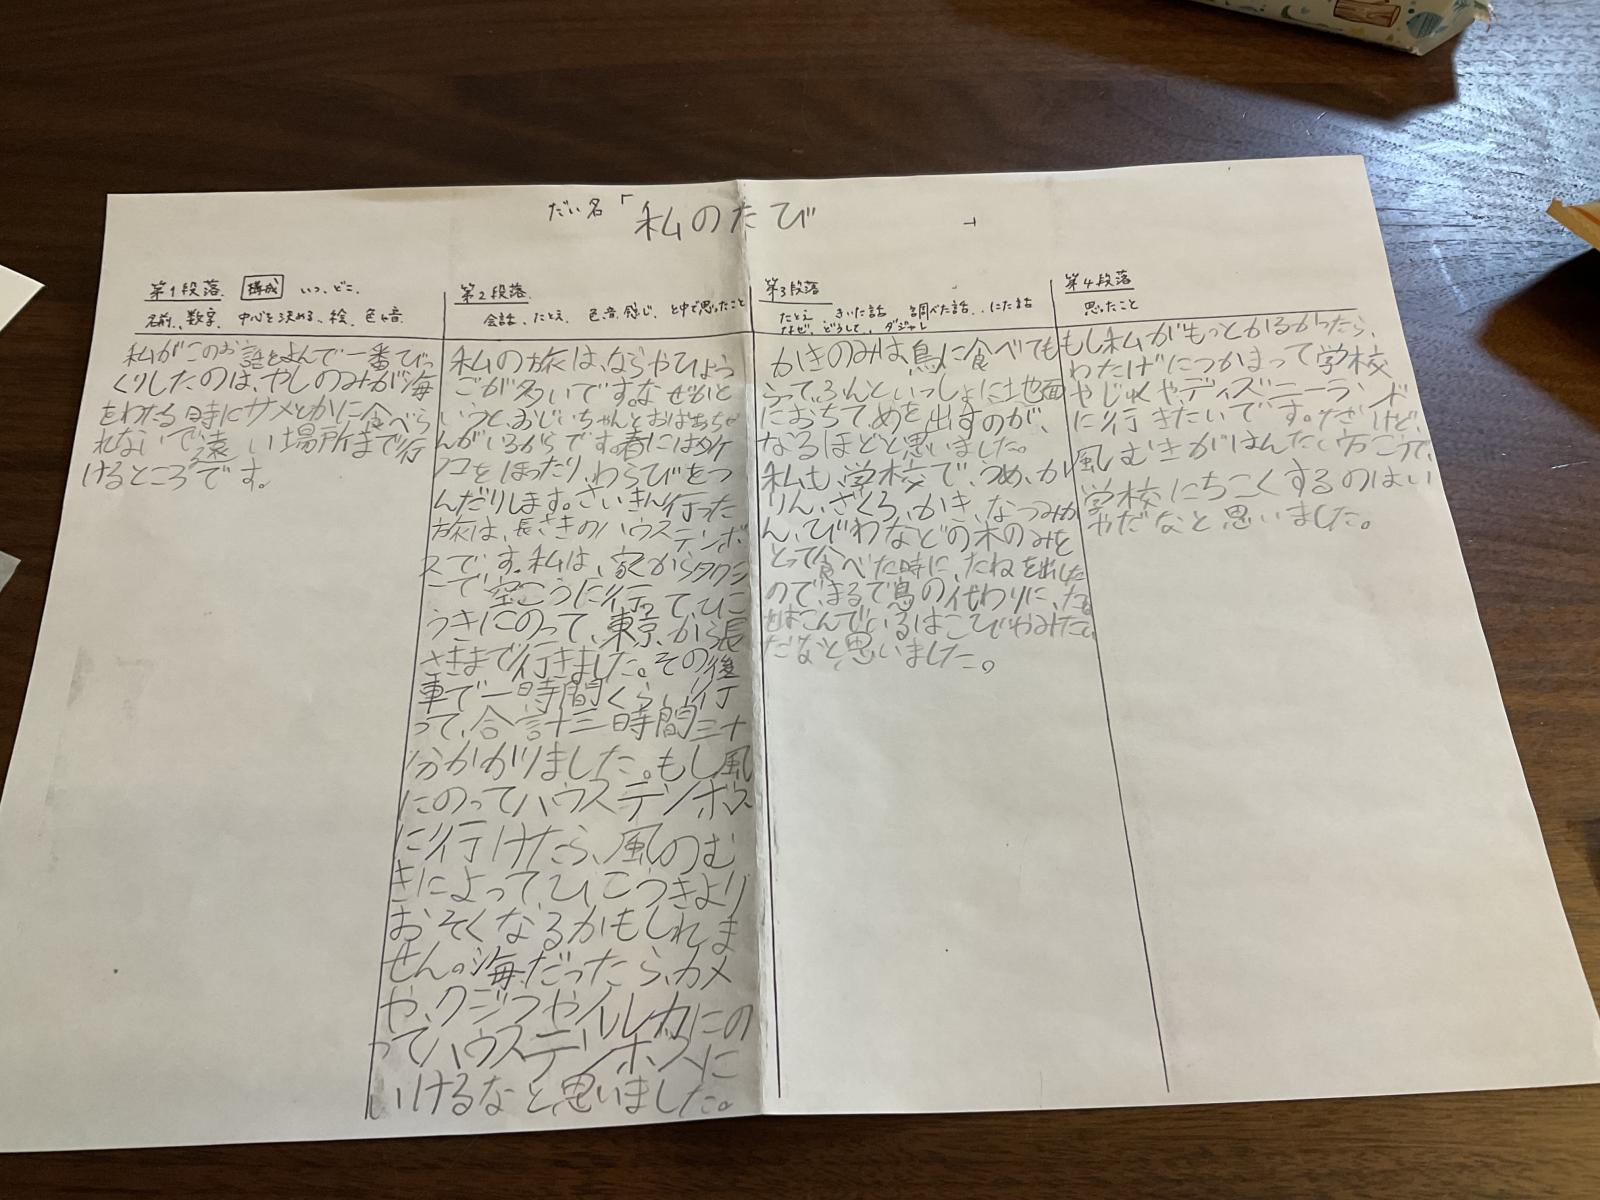 だい名「私のたび」
第1段落 構成 いつ、どこ、
名前、数字、中心を決める、絵、色や音
私がこのお話をよんで一番びっ
くりしたのは、やしのみが海
をわたる時にサメとかに食べら
れないで遠い場所まで行
けるところです。
第2段落
会話、たとえ、色、音、感じ、と中で思ったこと
私の旅は、ならやひょう
ごが多いです。なぜかと
いうと、おじいちゃんとおばあちゃ
んがいるからです。春にはタケ
ノコをほったり、わらびをつ
んだりします。さいきん行った
旅は、長さきのハウステンボ
スです。私は、家からタクシ
ーで、空こうに行って、ひこ
うきにのって、東京から長
さきまで行きました。その後
車で一時間くらい行
って、合計十三時間三十
分かかりました。もし風
にのってハウステンボス
に行けたら、風のむ
きによって、ひこうきより
おそくなるかもしれま
せん。海だったら、カメ
や、クジラやイルカにの
ってハウステンボスに
いけるなと思いました。
第3段落
たとえ、きいた話、調べた話、にた話
なぜ、どうして、ダジャレ
かきのみは、鳥に食べても
らって、ふんといっしょに地面
におちてめを出すのが、
なるほどと思いました。
私も、学校で、うめ、か
りん、ざくろ、かき、なつみか
ん、びわなどの木のみを
とって食べた時に、たねを出した
ので、まるで鳥の代わりに、たね
はこんでいるはこびやみたい
だなと思いました。
第4段落
思ったこと
もし私がもっとかるかったら、
わたげにつかまって学校
やじゅくや、ディズニーランド
に行きたいです。だけど、
風むきがはんたい方こうで、
学校にちこくするのはい
やだなと思いました。